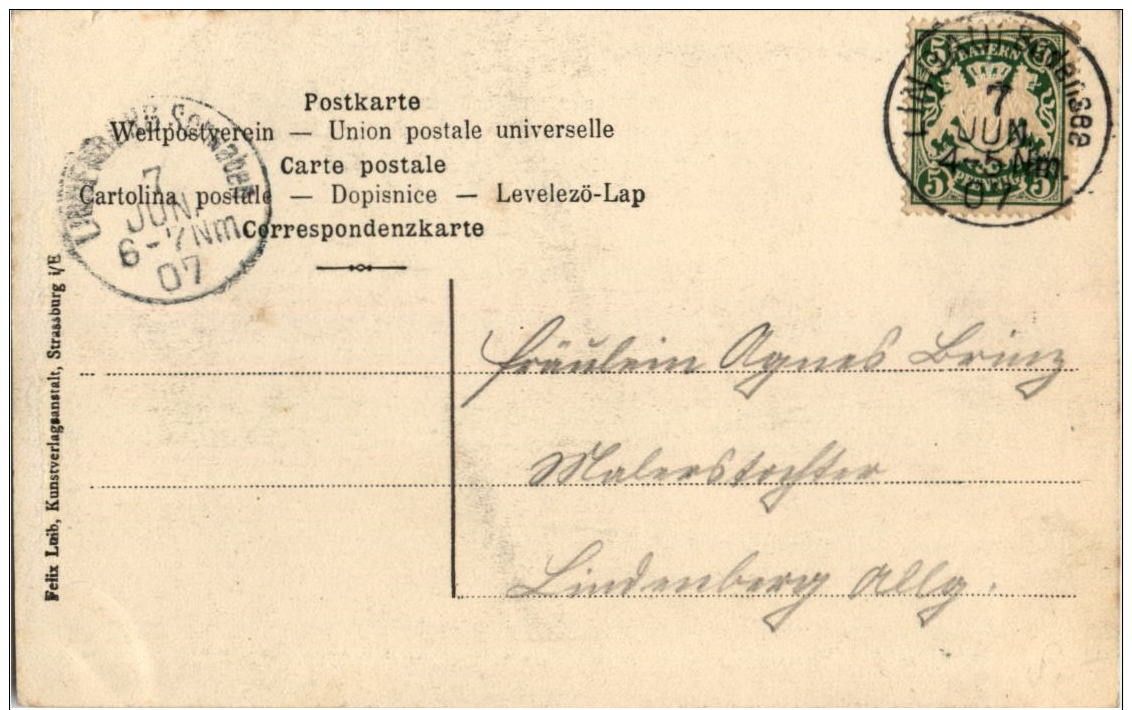 Postkarte
Weltpostverein — Union postale universelle
Carte postale
Cartolina postale — Dopisnice — Levelezö-Lap
Correspondenzkarte
LINDENBERG Schwaben
7
JUN.
6-7Nm
07
5 BAYERN 5
5 PFENNIG 5
LINDAU i. Bodensee
7
JUN.
4-5Nm.
07
Felix Luib, Kunstverlagsanstalt, Strassburg i/E
Fräulein Agnes Brinz
Malerstochter
Lindenberg Allg.